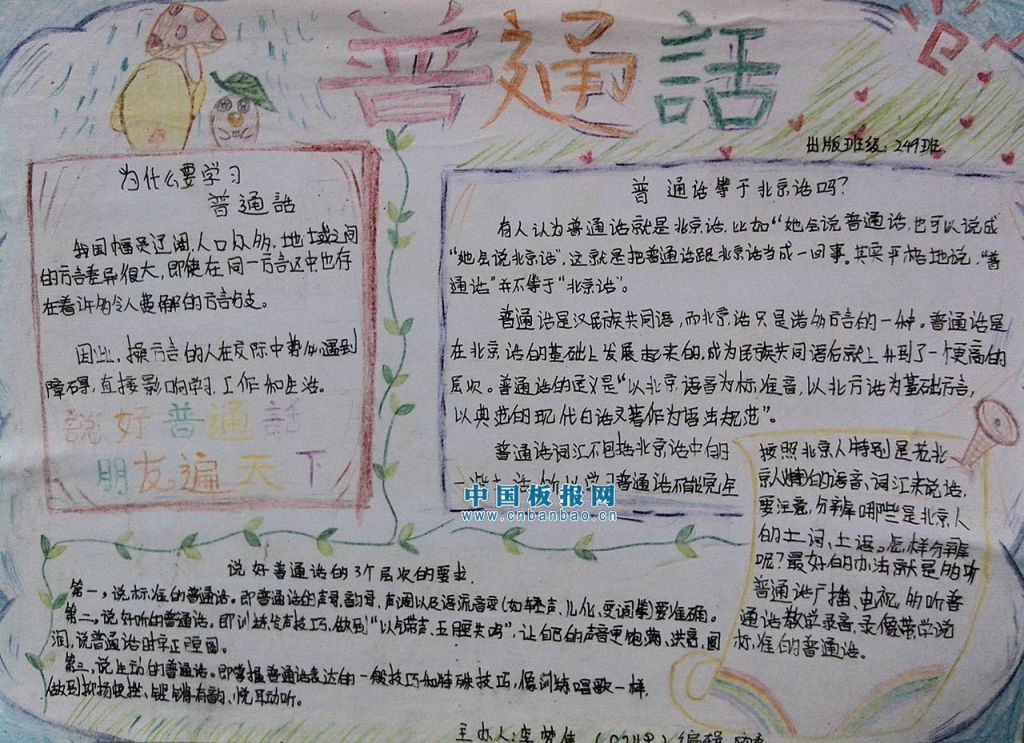 普通話
出版班级:249班
为什么要学习
普通话
我国幅员辽阔,人口众多,地域之间
的方言差异很大,即使在同一方言区中也存
在着许多令人费解的方言
因此,操方言的人在交际中势必遇到
障碍,直接影响学习、工作和生活。
説好普通話
朋友遍天下
普通话等于北京话吗?
有人认为普通话就是北京话,比如“她会说普通话,也可以说成
“她会说北京话”,这就是把普通话跟北京话当成一回事。其实严格地说,“普
通话”并不等于“北京话”。
普通话是汉民族共同语,而北京话只是诸多方言的一种。普通话是
在北京话的基础上发展起来的,成为民族共同语后就上升到了一个更高的
层次。普通话的定义是“以北京语音为标准音,以北方话为基础方言,
以典范的现代白话文著作为语法规范”。
普通话词汇不包括北京话中的
一些土话,所以学习普通话不能完全
中国板报网
www.cnbanbao.cn
按照北京人特别是老北
京人的语音、词汇来说话,
要注意分辨哪些是北京人
的土词、土语。怎样分辨
呢?最好的办法就是多听
普通话广播、电视,多听普
通话教学录音、录像带学说
标准的普通话。
说好普通话的3个层次的要求
第一,说标准的普通话。即普通话的声母、韵母、声调以及语流音变(如轻声、儿化、变调等)要准确。
第二,说好听的普通话。即训练发声技巧,做到“以气带声、五腔共鸣”,让自己的声音更饱满、洪亮、圆
润,说普通话时字正腔圆。
第三,说生动的普通话。即掌握普通话表达的一般技巧和特殊技巧,像训练唱歌一样,
做到抑扬顿挫、铿锵有韵、悦耳动听。
主办人:李梦佳 编辑